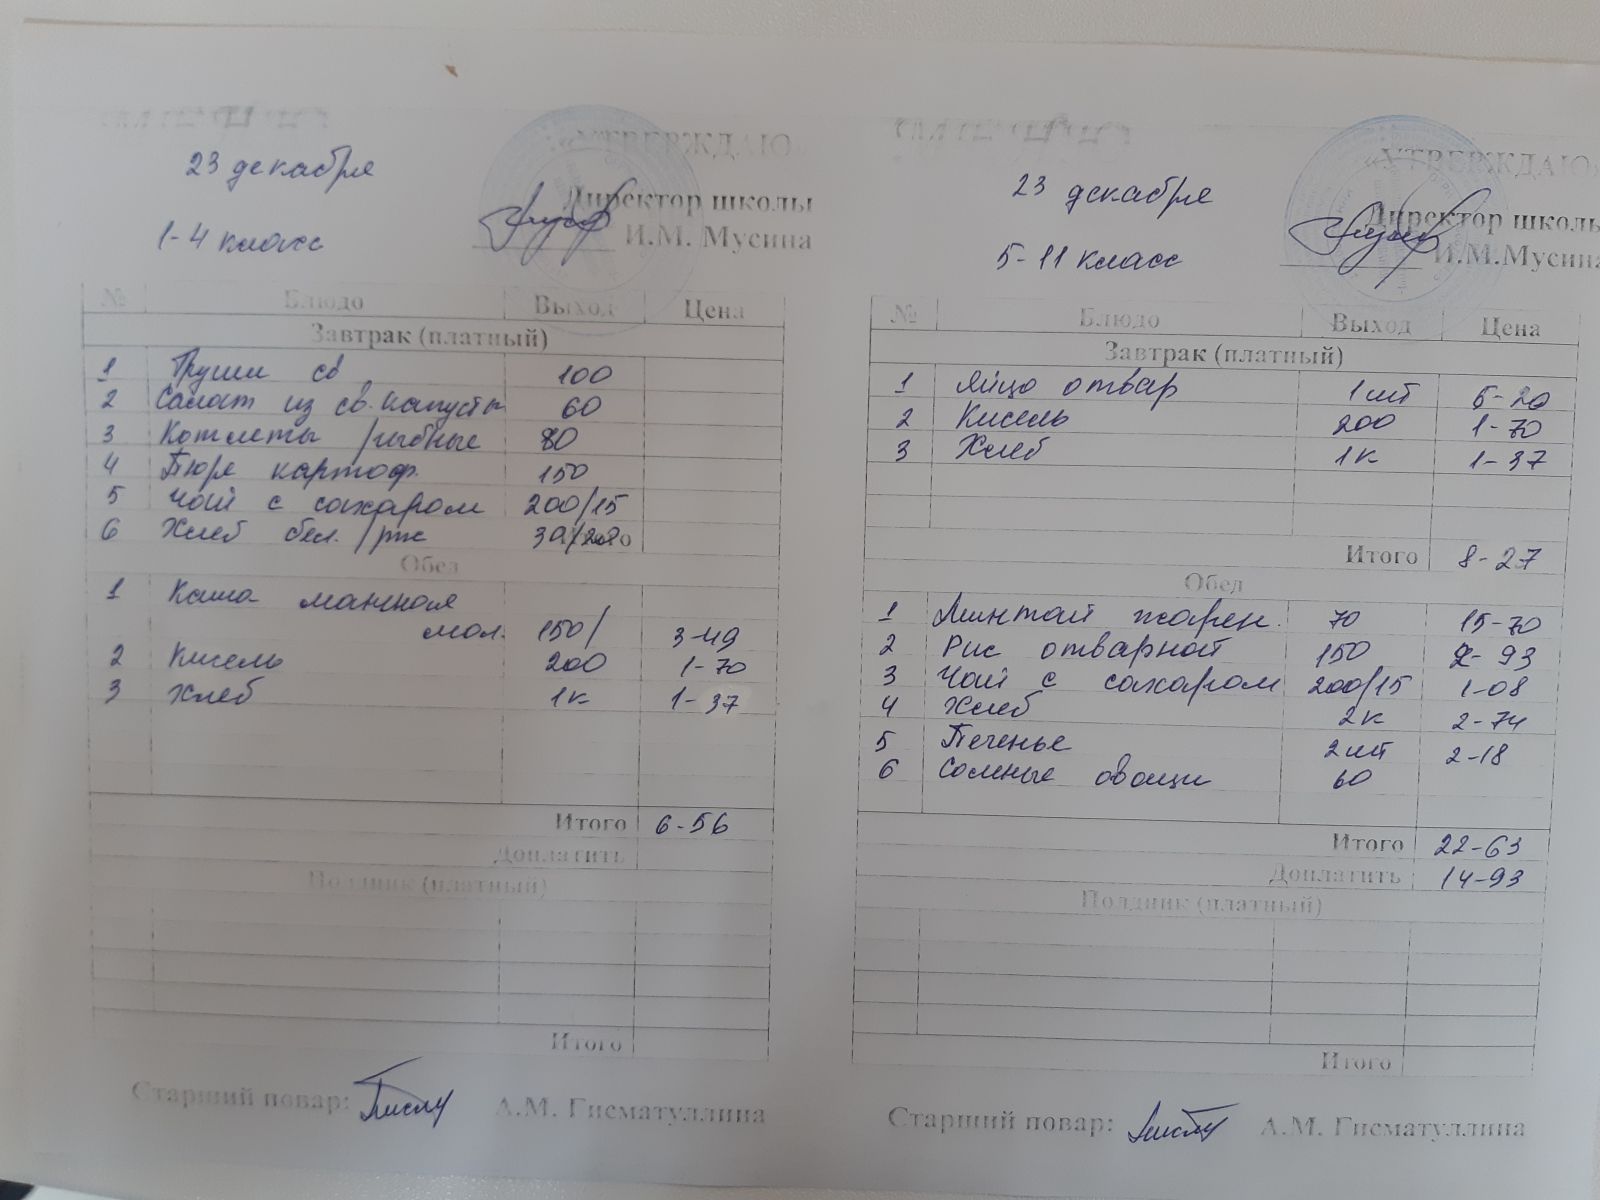 «УТВЕРЖДАЮ»
23 декабря
Директор школы
1-4 класс
И.М. Мусина
№ Блюдо Выход Цена
Завтрак (платный)
1 Груши св 100
2 Салат из св. капусты 60
3 Котлеты рыбные 80
4 Пюре картоф. 150
5 Чай с сахаром 200/15
6 Хлеб бел. /рж 30/20
Обед
1 Каша манная
мол. 150/ 3-49
2 Кисель 200 1-70
3 Хлеб 1к 1-37
Итого 6-56
Доплатить
Полдник (платный)
Итого
Старший повар: А.М. Гисматуллина
«УТВЕРЖДАЮ»
23 декабря
Директор школы
5-11 класс
И.М.Мусина
№ Блюдо Выход Цена
Завтрак (платный)
1 Яйцо отвар 1шт 5-20
2 Кисель 200 1-70
3 Хлеб 1к 1-37
Итого 8-27
Обед
1 Минтай жарен. 70 15-70
2 Рис отварной 150 2-93
3 Чай с сахаром 200/15 1-08
4 Хлеб 2к 2-74
5 Печенье 2шт 2-18
6 Соленые овощи 60
Итого 22-63
Доплатить 14-93
Полдник (платный)
Итого
Старший повар: А.М. Гисматуллина